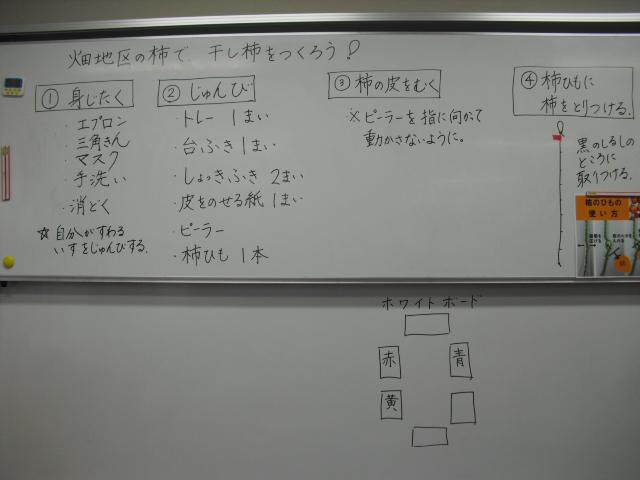 畑地区の柿で、干し柿をつくろう!
① 身じたく
・エプロン
・三角きん
・マスク
・手洗い
・消どく
☆ 自分がすわる
いすをじゅんびする。
② じゅんび
・トレー 1まい
・台ふき 1まい
・しょっきふき 2まい
・皮をのせる紙 1まい
・ピーラー
・柿ひも 1本
③ 柿の皮をむく
※ピーラーを指に向かって
動かさないように。
④ 柿ひもに
柿をとりつける。
黒のしるしの
ところに
取りつける。
柿のひもの
使い方
ホワイトボード
赤
青
黄